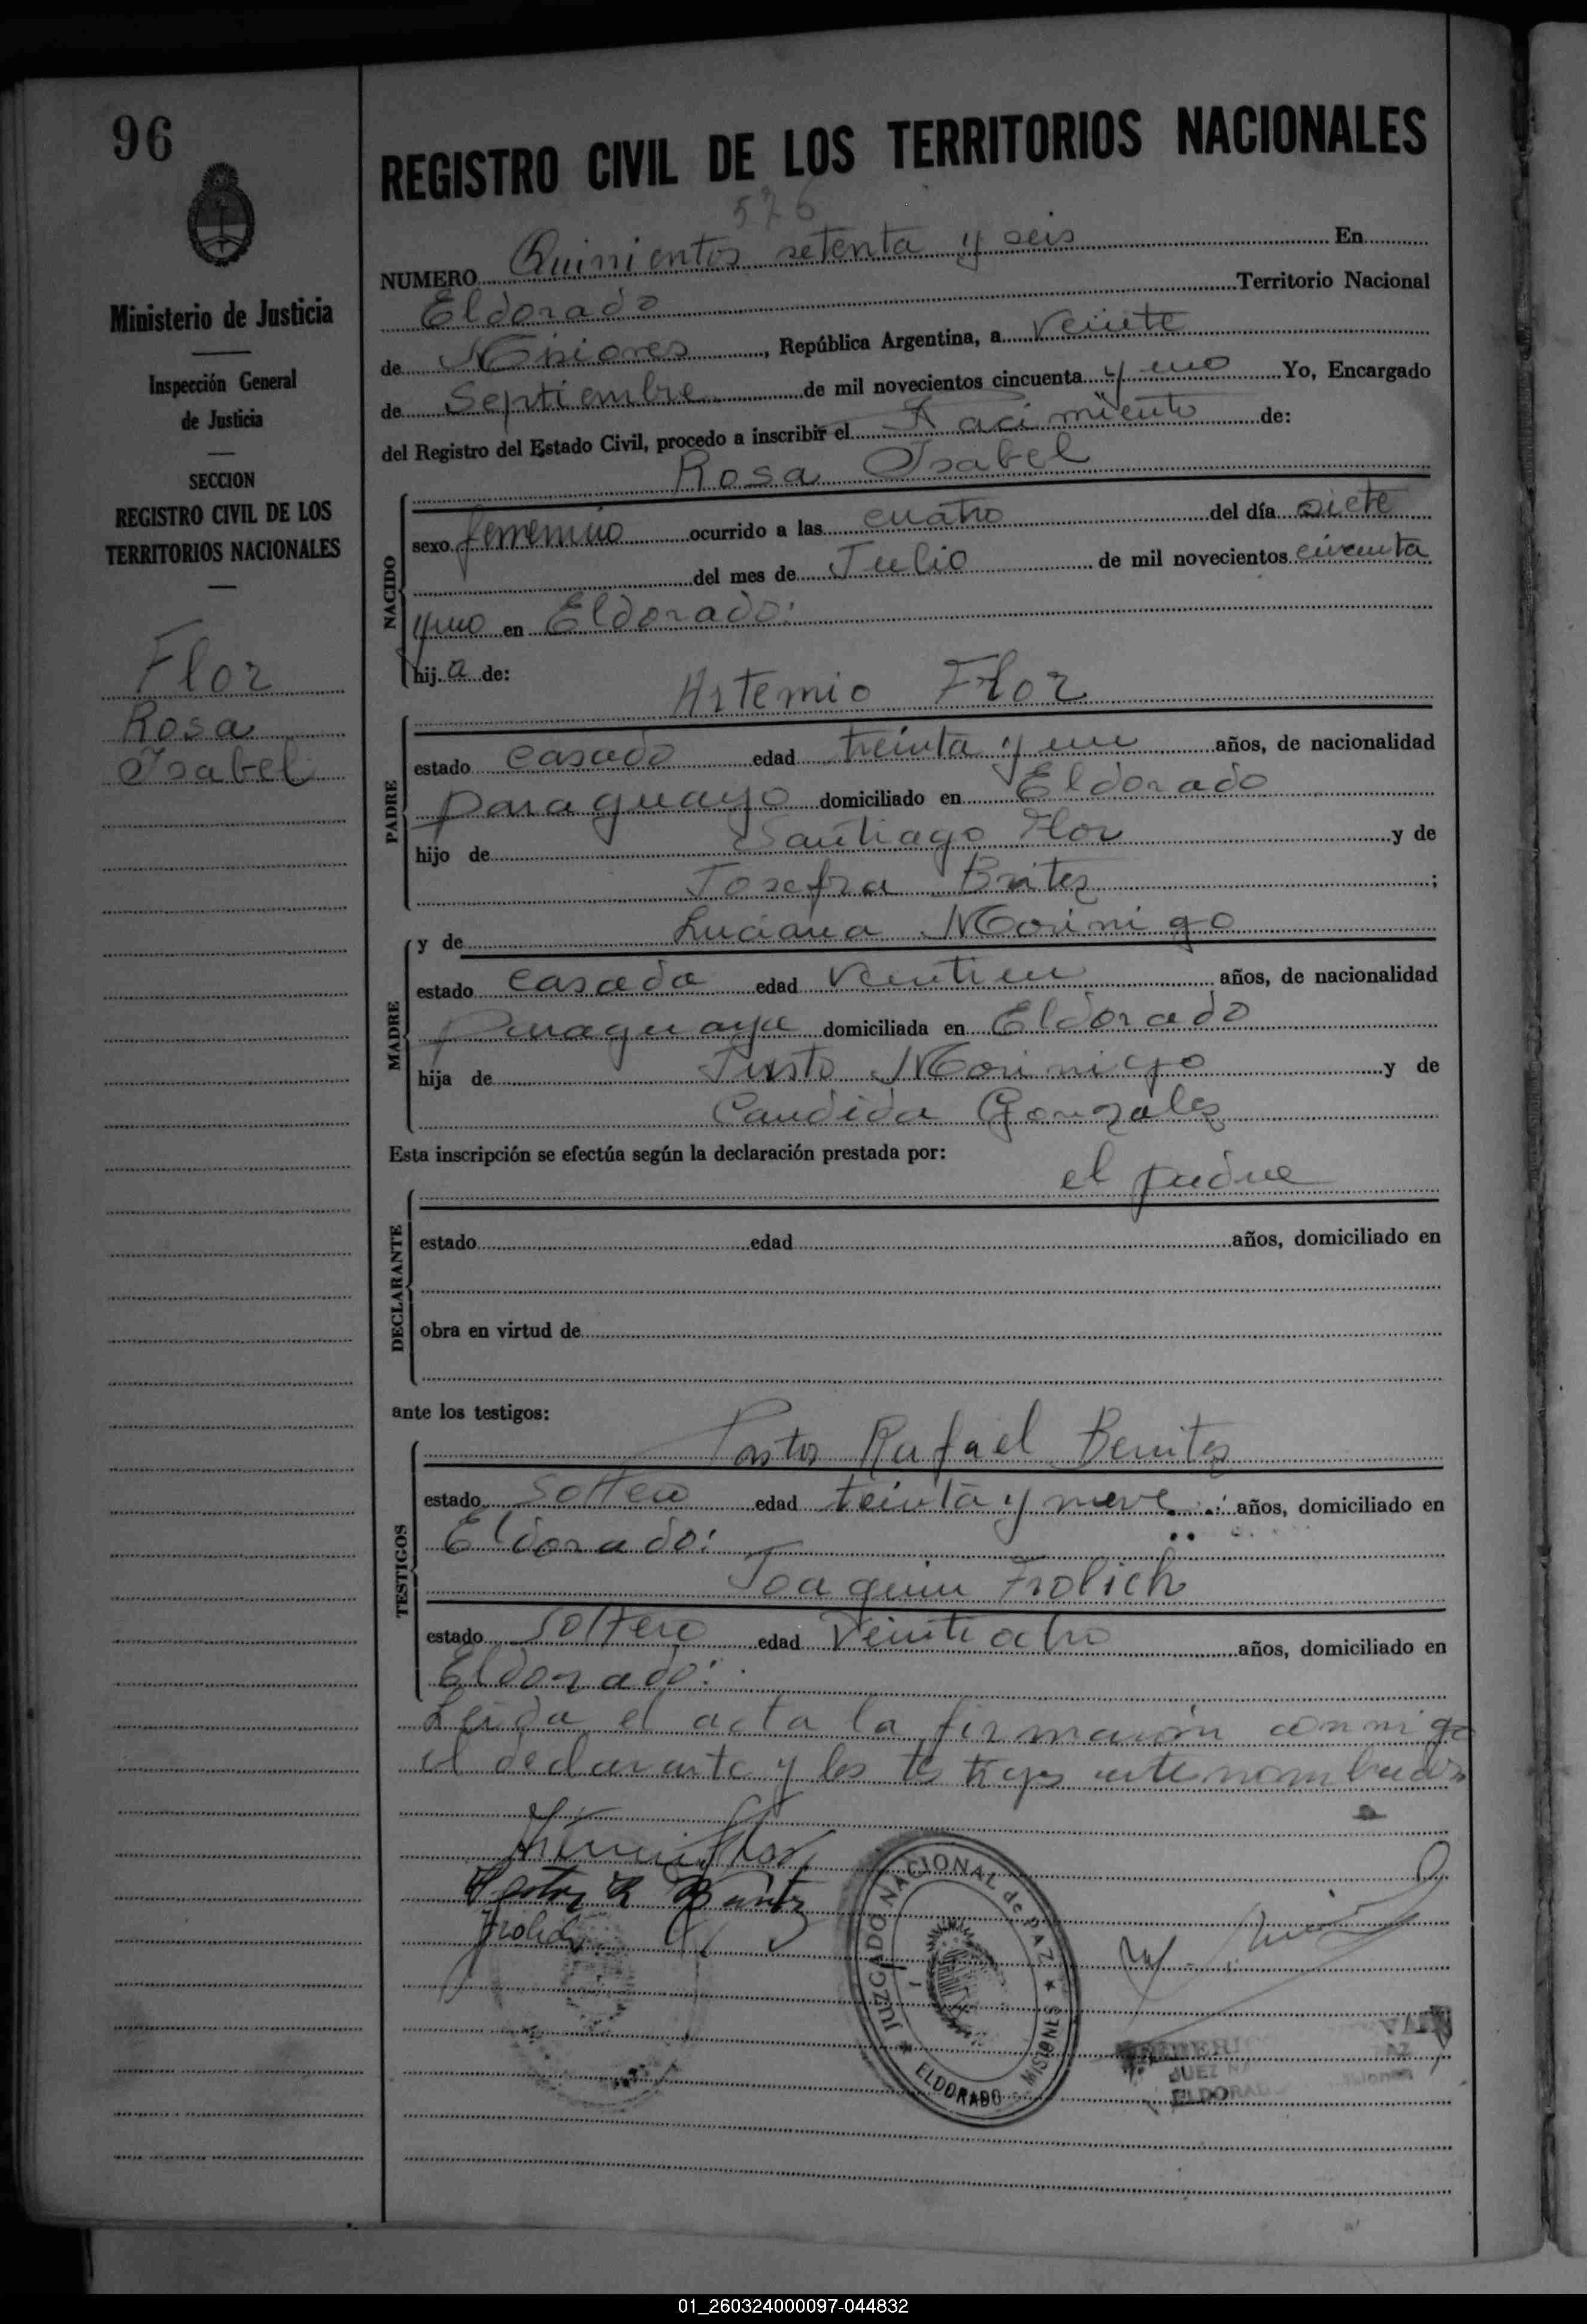 96
Ministerio de Justicia
Inspección General
de Justicia
SECCION
REGISTRO CIVIL DE LOS
TERRITORIOS NACIONALES
Flor
Rosa
Isabel
REGISTRO CIVIL DE LOS TERRITORIOS NACIONALES
576
NUMERO Quinientos setenta y seis En
Eldorado Territorio Nacional
de Misiones, República Argentina, a veinte
de Septiembre de mil novecientos cincuenta y uno Yo, Encargado
del Registro del Estado Civil, procedo a inscribir el Nacimiento de:
Rosa Isabel
NACIDO
sexo femenino ocurrido a las cuatro del día siete
del mes de Julio de mil novecientos cincuenta
y uno en Eldorado:
hij a de:
Artemio Flor
PADRE
estado casado edad treinta y un años, de nacionalidad
paraguayo domiciliado en Eldorado
hijo de Santiago Flor y de
Josefa Britez;
y de Luciana Morinigo
MADRE
estado casada edad veintiun años, de nacionalidad
paraguaya domiciliada en Eldorado
hija de Justo Morinigo y de
Candida Gonzalez
Esta inscripción se efectúa según la declaración prestada por:
el padre
DECLARANTE
estado edad años, domiciliado en
obra en virtud de
ante los testigos:
Pastor Rafael Benitez
TESTIGOS
estado soltero edad treinta y nueve años, domiciliado en
Eldorado:
Joaquin Frolich
estado soltero edad veintiocho años, domiciliado en
Eldorado:
Leida el acta la firmaron conmigo
el declarante y los testigos antenombrados
Pastor R Benitez
Frolich
JUZGADO NACIONAL de PAZ ★ ELDORADO - MISIONES ★
JUEZ
ELDORADO
01_260324000097-044832